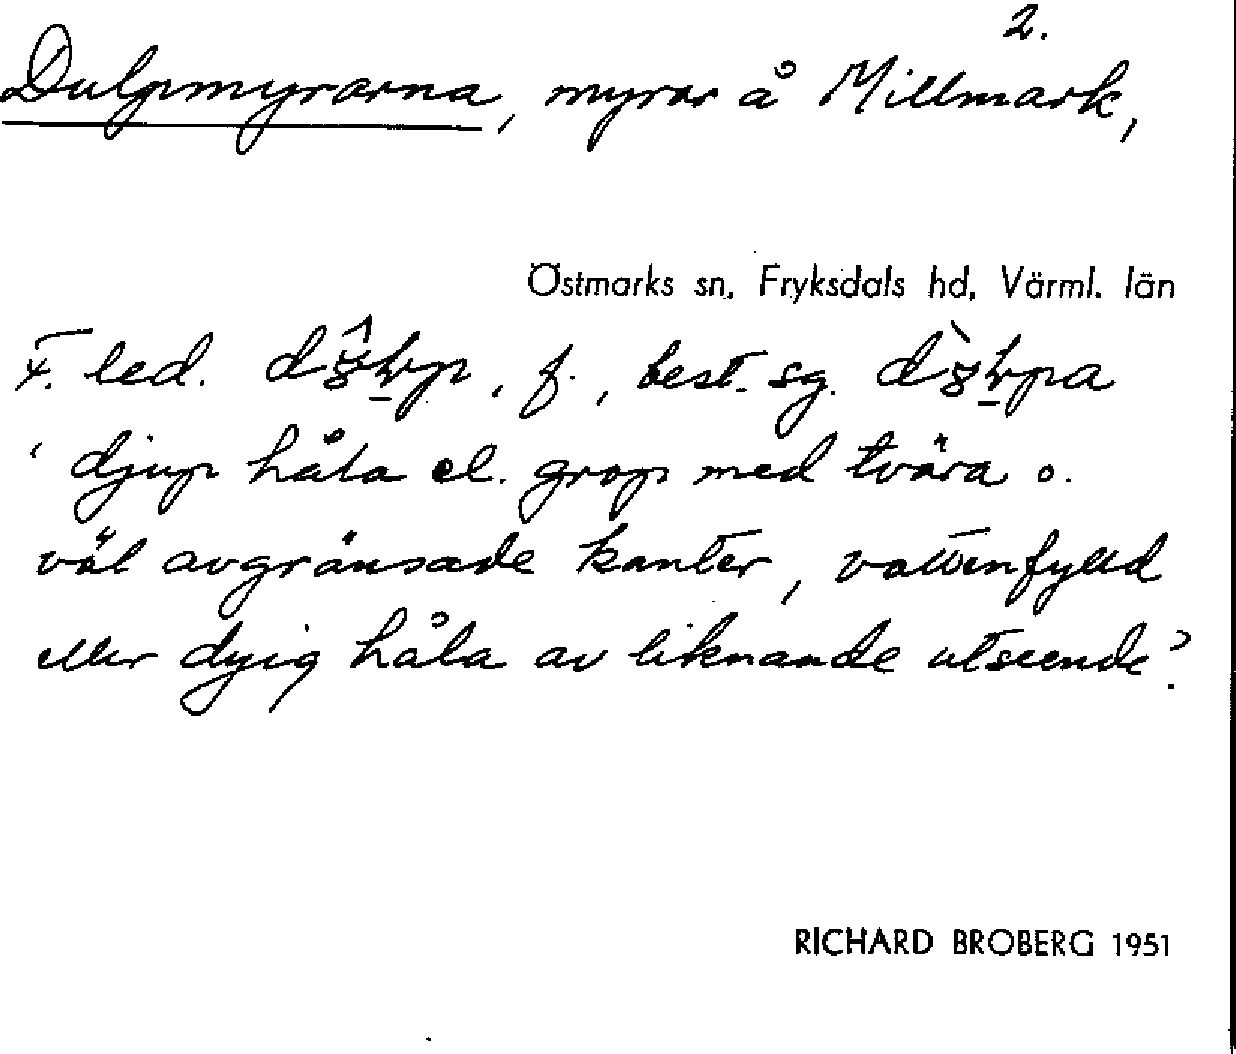 2.
Dulpmyrarna, myrar å Millmark,
Östmarks sn, Fryksdals hd, Värml. län
F. led. , f., best. sg.
‘djup håla el. grop med tvära o.
väl avgränsade kanter, vattenfylld
eller dyig håla av liknande utseende’.
RICHARD BROBERG 1951